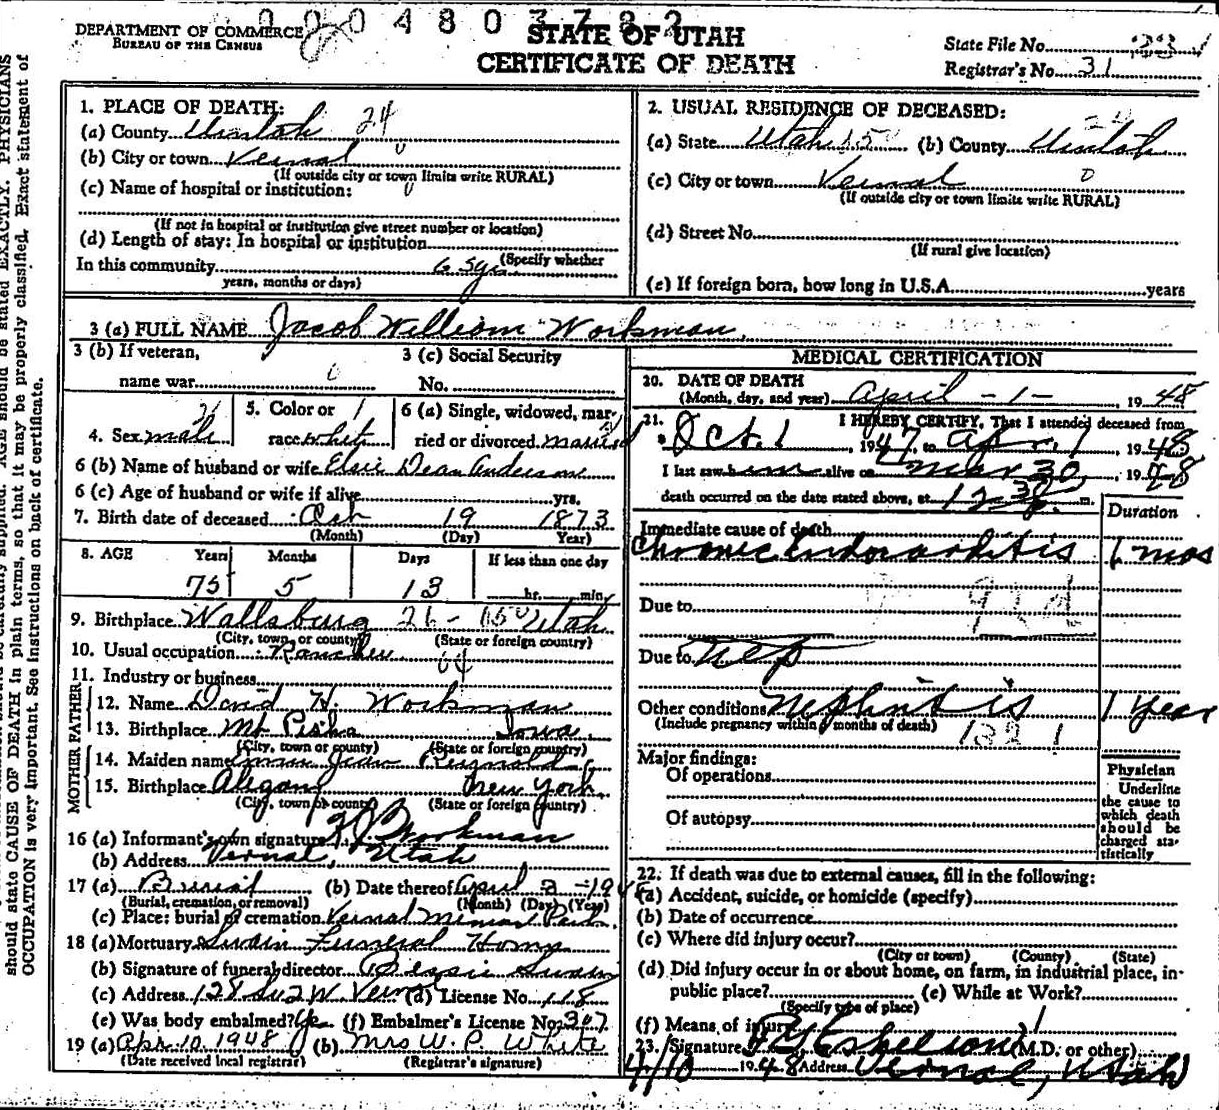 000480 3782
DEPARTMENT OF COMMERCE
BUREAU OF THE CENSUS
STATE OF UTAH
CERTIFICATE OF DEATH
State File No.
Registrar's No. 31
should state CAUSE OF DEATH in plain terms, so that it may be properly classified. Exact statement of
OCCUPATION is very important. See instructions on back of certificate.
AGE should be stated EXACTLY. PHYSICIANS
1. PLACE OF DEATH:
(a) County Uintah 24
(b) City or town Vernal 0
(If outside city or town limits write RURAL)
(c) Name of hospital or institution: 0
(If not in hospital or institution give street number or location)
(d) Length of stay: In hospital or institution
(Specify whether
In this community 65 yrs.
years, months or days)
2. USUAL RESIDENCE OF DECEASED:
(a) State Utah 150 (b) County Uintah
(c) City or town Vernal 0
(If outside city or town limits write RURAL)
(d) Street No.
(If rural give location)
(e) If foreign born, how long in U.S.A. years
3 (a) FULL NAME Jacob William Workman
3 (b) If veteran,
name war 0
3 (c) Social Security
No.
4. Sex male
5. Color or
race white 1
6 (a) Single, widowed, mar-
ried or divorced married
6 (b) Name of husband or wife Elsie Dean Anderson
6 (c) Age of husband or wife if alive yrs.
7. Birth date of deceased 19 1873
(Month) (Day) Year)
8. AGE Years Months Days If less than one day
75 5 13 hr. min.
9. Birthplace Wallsburg 26- 150 Utah
(City, town, or county) (State or foreign country)
10. Usual occupation Rancher
11. Industry or business
FATHER
12. Name David H. Workman
13. Birthplace Mt Pisha Iowa
(City, town or county) (State or foreign country)
MOTHER
14. Maiden name Jean Reynolds
15. Birthplace Alegany New York
(City, town or county) (State or foreign country)
16 (a) Informant's own signature Workman
(b) Address Vernal, Utah
17 (a) Burial (b) Date thereof April 3 - 1948
(Burial, cremation, or removal) (Month) (Day) (Year)
(c) Place: burial or cremation Vernal Memorial Park
18 (a) Mortuary Swain Funeral Home
(b) Signature of funeral director Bessie Swain
(c) Address 128 So 2 W. Vernal (d) License No. 118
(e) Was body embalmed? Yes (f) Embalmer's License No. 307
19 (a) Apr. 10. 1948 (b) Mrs W. P. White
(Date received local registrar) (Registrar's signature)
MEDICAL CERTIFICATION
20. DATE OF DEATH
(Month, day, and year) April - 1 - , 1948
21. I HEREBY CERTIFY, That I attended deceased from
Oct. 1, 1947, to Apr. 1 1948
I last saw him alive on Mar 30, 1948
death occurred on the date stated above, at 12 30 P. m.
Duration
Immediate cause of death
Chronic Endocarditis 6 mos
Due to 92d
Due to Nep
Other conditions Nephritis 1 year
(Include pregnancy within months of death) 132 1
Major findings:
Of operations
Of autopsy
Physician
Underline
the cause to
which death
should be
charged sta-
tistically
22. If death was due to external causes, fill in the following:
(a) Accident, suicide, or homicide (specify)
(b) Date of occurrence
(c) Where did injury occur?
(City or town) (County) (State)
(d) Did injury occur in or about home, on farm, in industrial place, in-
public place? (e) While at Work?
(Specify type of place)
(f) Means of injury
23. Signature Eskelson (M.D. or other)
4/10 1948 Address Vernal, Utah